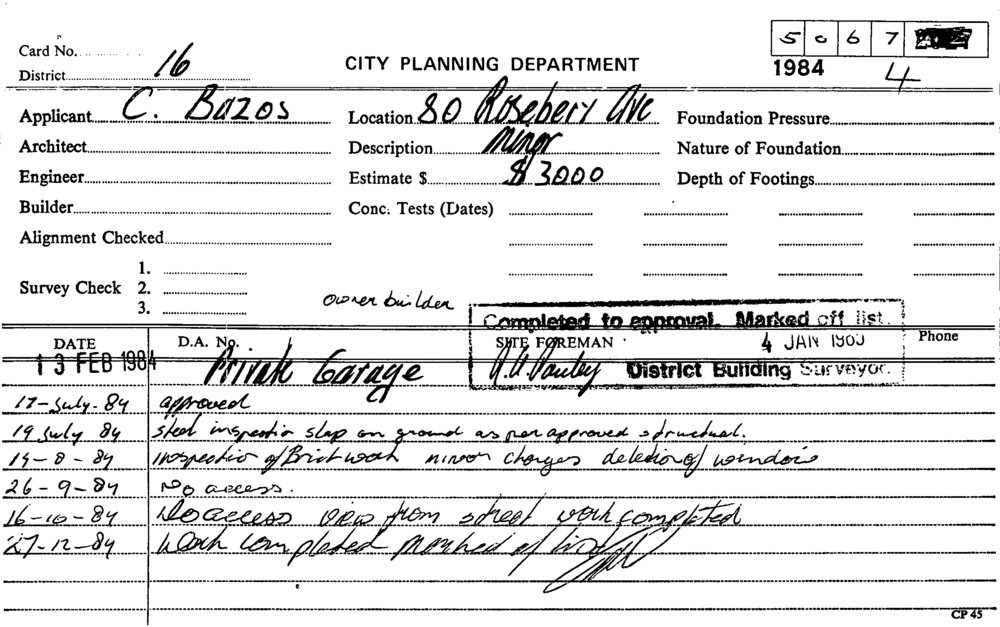 5 0 6 7
Card No.
16
District
CITY PLANNING DEPARTMENT
1984 4
Applicant C. Bazos
Location 80 Rosebery Ave
Foundation Pressure
Architect
Description Minor
Nature of Foundation
Engineer
Estimate $ $3000
Depth of Footings
Builder
Conc. Tests (Dates)
Alignment Checked
Survey Check 1.
2.
3.
owner builder
Completed to approval. Marked off list.
DATE D.A. No. SITE FOREMAN 4 JAN Phone
13 FEB 1984 Private Garage District Building Surveyor.
17-July-84 approved
19 July 84 steel inspection slap on ground as per approved structual.
15-8-84 inspection of Brickwork minor changes deletion of window
26-9-84 No access.
16-10-84 No access view from street work completed
27-12-84 Work completed marked of list
CP 45